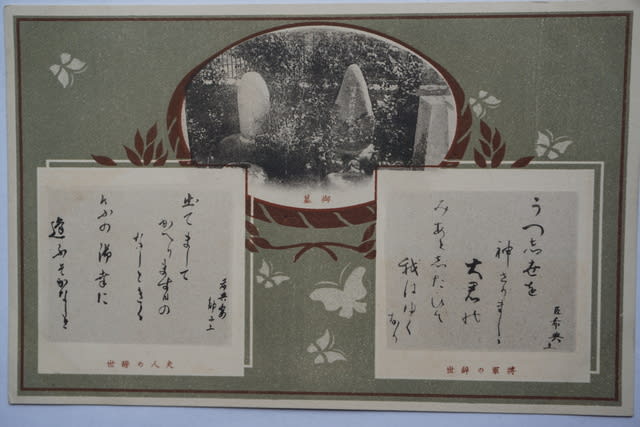 御墓
臣希典上
うつ志世を
神さりましゝ
大君乃
みあと志たひて
我はゆく
なり
將軍の辭世
希典妻
静子上
出てまして
かへります日の
なしときく
けふの御幸に
逢ふそかなしき
夫人の辭世